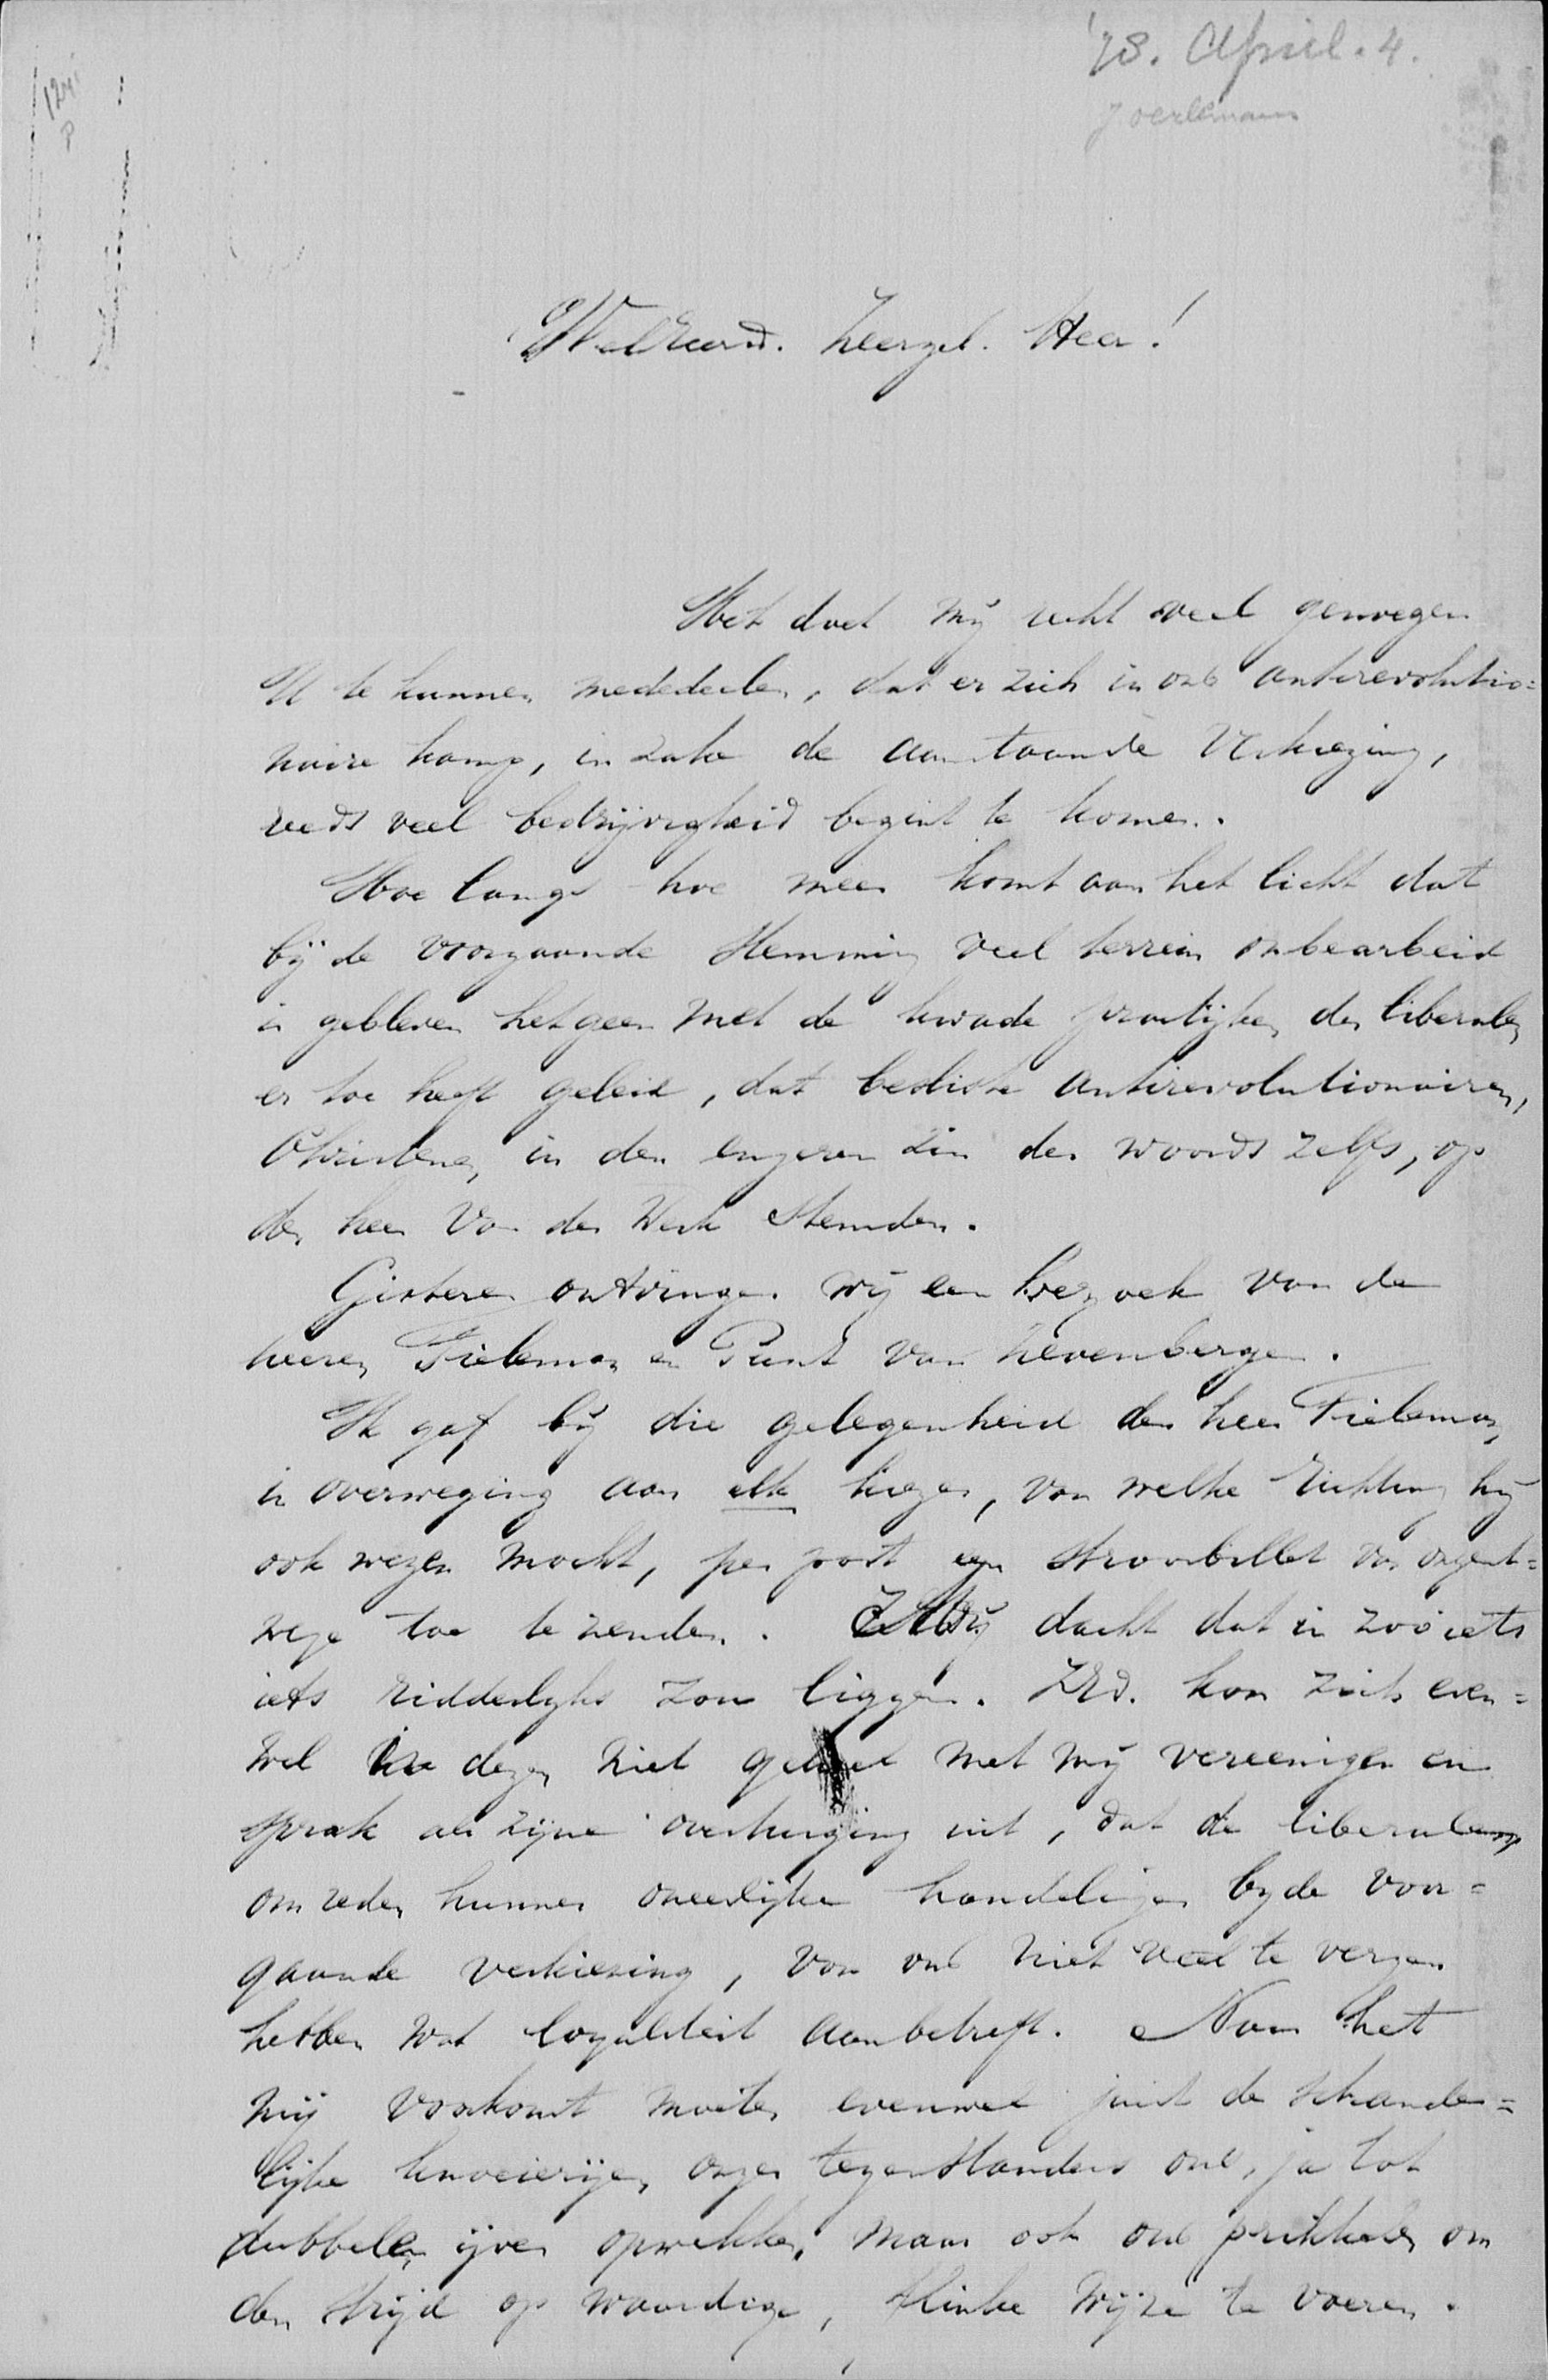 '78. April. 4.
J oerlemans
WelEerw. zeergel. Heer!
Het doet mij recht veel genoegen
U te kunnen mededeelen, dat er zich in ons antirevolutio=
naire kamp, in zake de aanstaande verkiezing,
reeds veel bedrijvigheid begint te komen.
Hoe langer hoe meer komt aan het licht dat
bij de voorgaande stemming veel terrein onbearbeid
is gebleven hetgeen met de kwade practijken der liberalen
er toe heeft geleid, dat besliste antirevolutionairen,
Christenen, in den engeren zin des woords zelfs, op
den heer Van der Werk stemden.
Gisteren ontvingen wij een bezoek van de
heeren Tieleman en Punt van Zevenbergen.
Ik gaf bij die gelegenheid den heer Tieleman
in overweging aan elk kiezer, van welke richting hij
ook wezen mocht, per post een strooibillet van onzent=
wege toe te zenden. dacht dat in zoo iets
iets ridderlijks zou liggen. ZEd. kon zich even=
wel in dezen niet geheel met mij vereenigen en
sprak als zijne overtuiging uit, dat de liberalen
om reden hunner oneerlijke handelingen bij de voor=
gaande verkiezing, van ons niet veel te vergen
hebben wat loyaliteit aanbetreft. Naar het
mij voorkomt moeten evenwel juist de schande=
lijke knoeierijen onzer tegenstanders ons, ja tot
dubbelen ijver opwekken, maar ook ons prikkelen om
den strijd op waardige, flinke wijze te voeren.